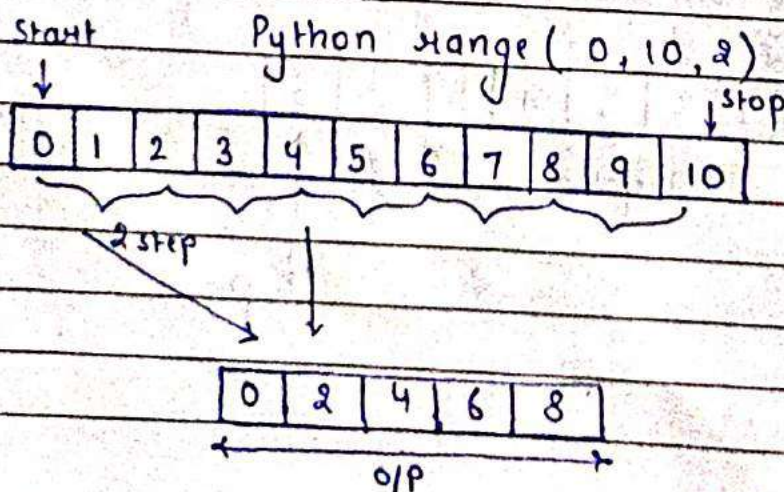 start Python range ( 0, 10, 2)
stop
0 1 2 3 4 5 6 7 8 9 10
2 step
0 2 4 6 8
O/P